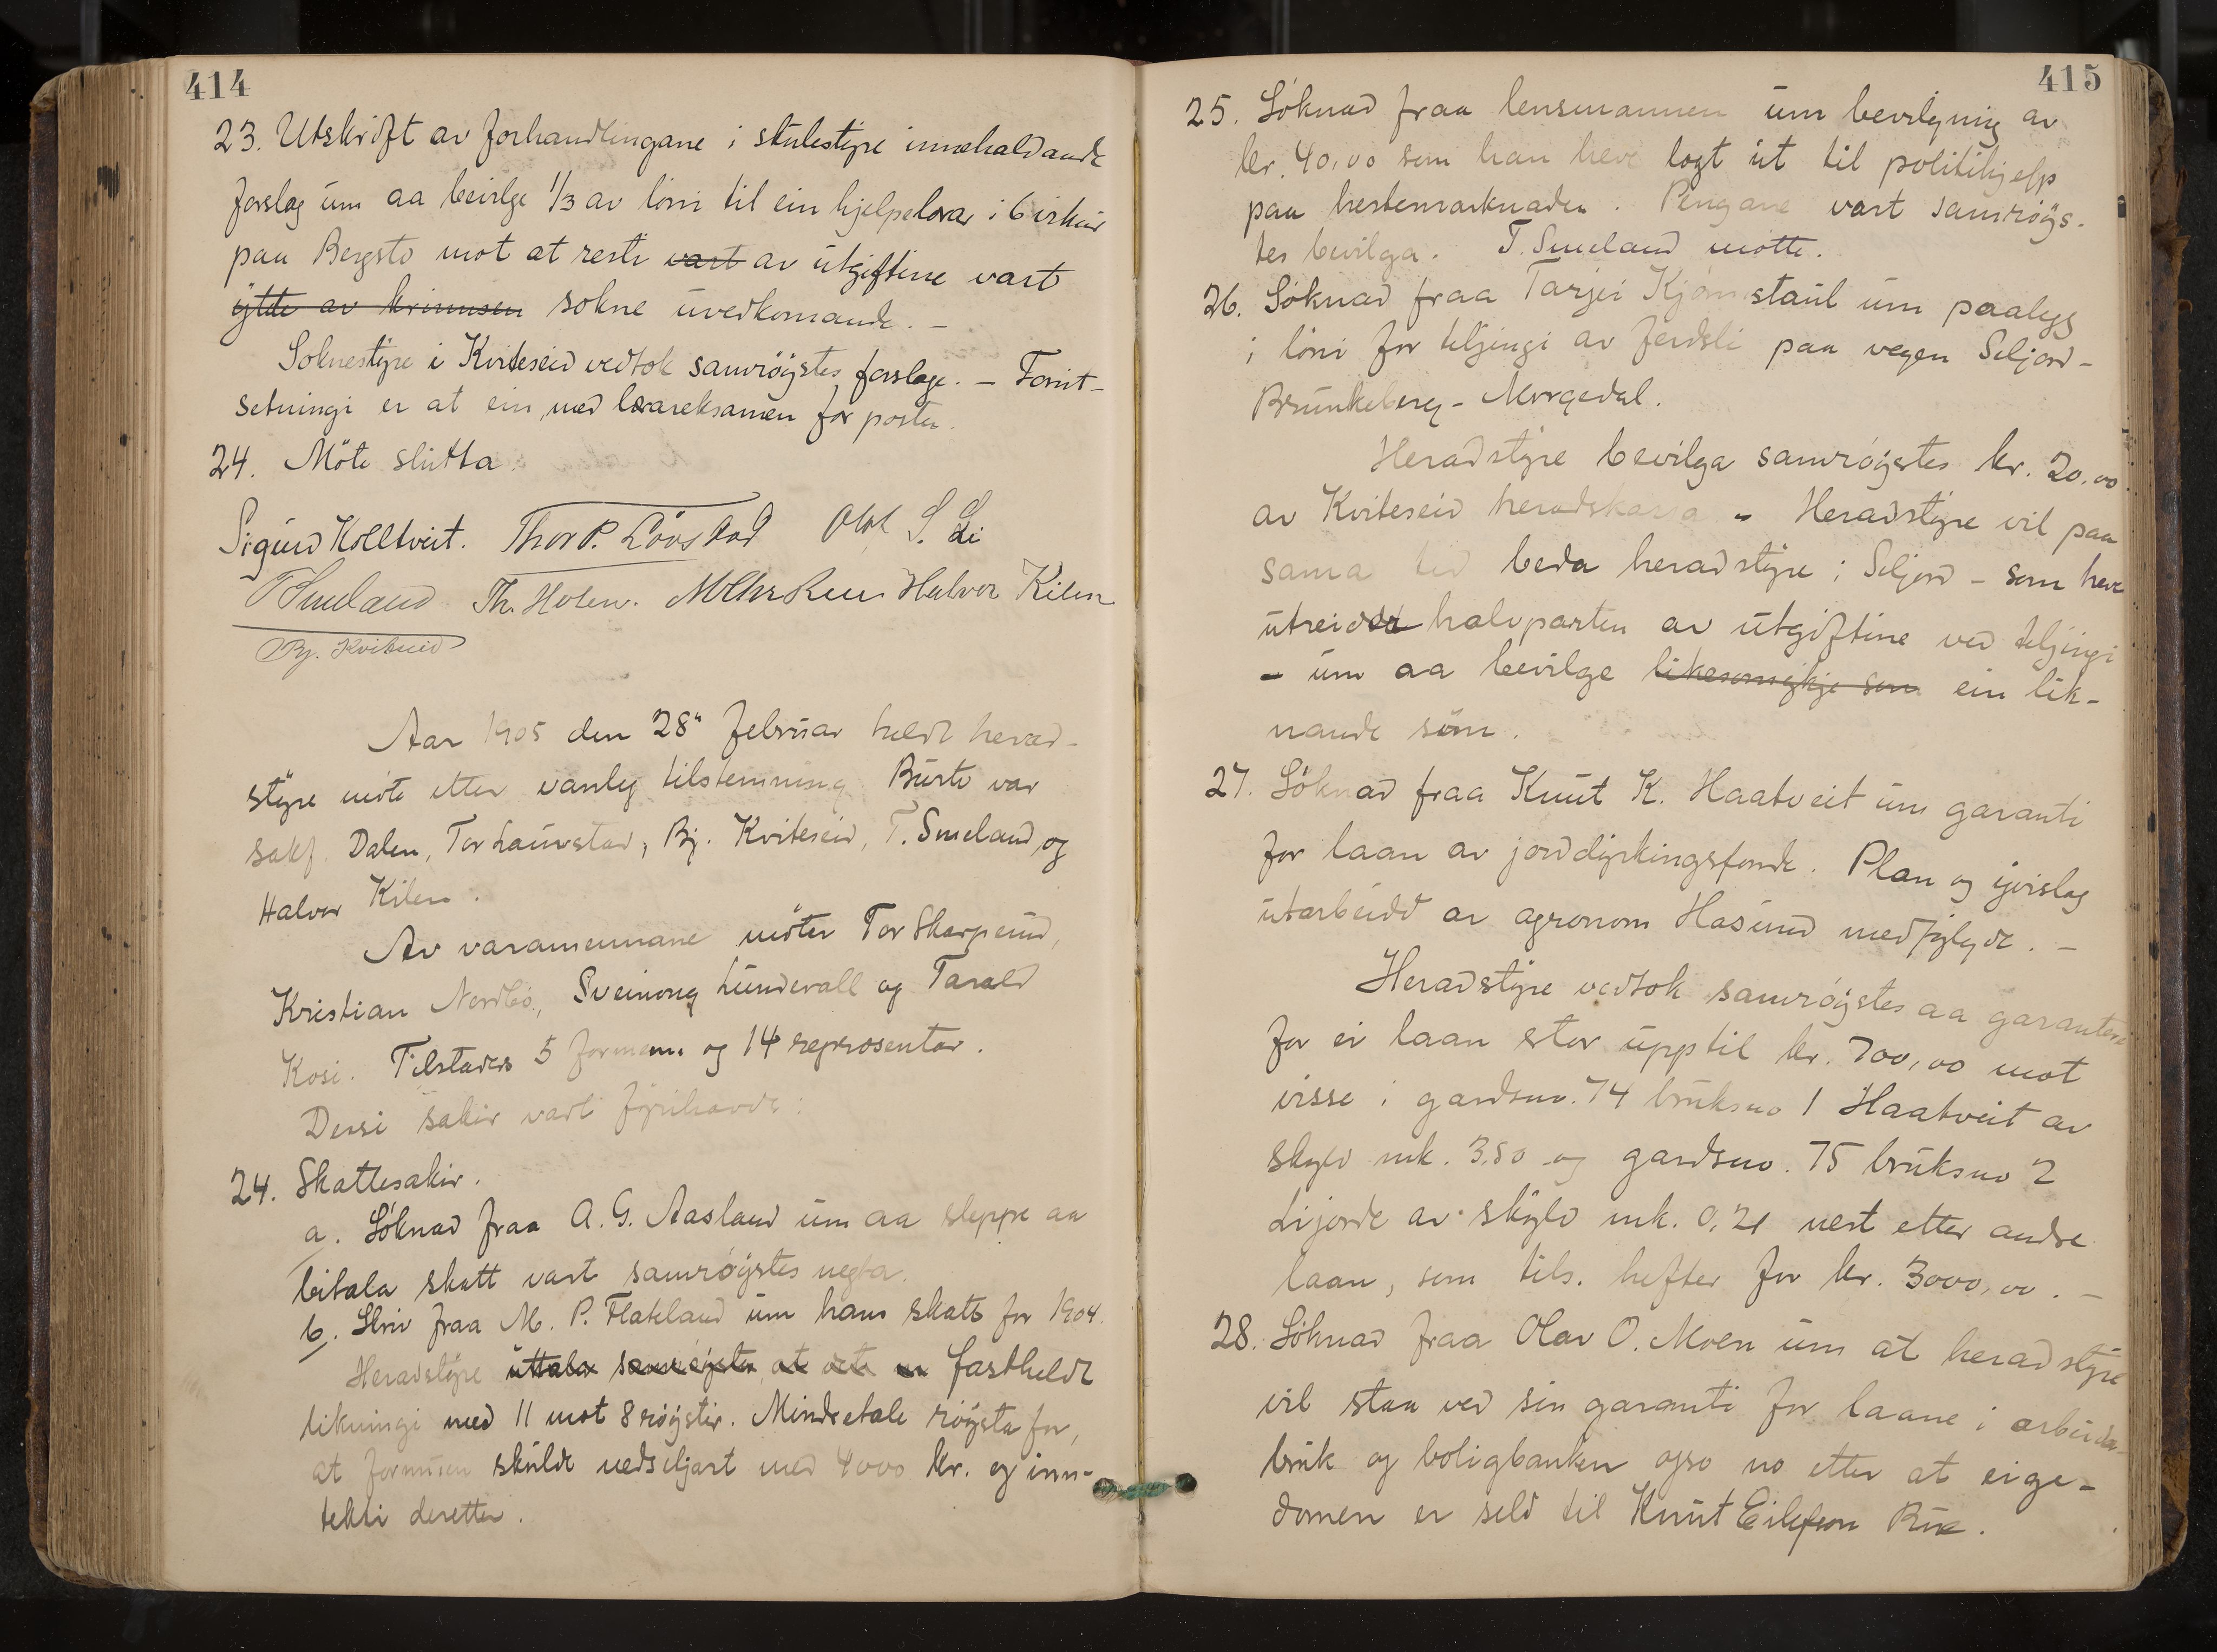 414
23. Utskrift av forhandlingane i skulestyre innehaldande
forslag um aa beivlge 1/3 av löni til ein hjelpelærar i 6 virkur
paa Bergstö mot at resti vart av utgiftine vart
ytte av krinnsen sokne uvedkomande. –
Soknestyre i Kviteseid vedtok samröystes forslage. – Forut-
setningi er at ein med lærareksamen fær posten.
24. Möte slutta.
Sigurd Kolltveit. Thor P. Lövstad Olav S. Li
T Smeland Th. Holen. Halvor Kilen
Bj. Kviteseid
Aar 1905 den 28" februar heldt herad-
styre möte etter vanleg tilstemning. Burte var
sakf. Dalen, Tor Launstad, Bj. Kviteseid, T. Smeland, og
Halvor Kilen.
Av varamennane möter Tor Skarpeid,
Kristian Nordbö, Sveinung Lundevall og Tarald
Kosi. Tilstades 5 formenn og 14 representar.
Dessi sakir vart fyrihavde:
24. Skattesakir.
a. Söknad fraa A. G. Aasland um aa sleppe aa
beitala skatt vart samröystes negta.
b. Skriv fraa M. P. Flateland um hans skatt for 1904.
Heradstyre uttalar samröystes at dette er fastheldt
likningi med 11 mot 8 röyster. Mindretale röysta for,
at formuen skulde nedseljast med 4000 kr. og inn-
tekti deretter.
415
25. Söknad fraa lensmannen um bevilgning av
kr. 40,00 som han heve lagt ut til politihjelp
paa hestemarknaden. Pengane vart samröys-
tes bevilga. T. Smeland mötte.
26. Söknad fraa Tarjei Kjömstaul um paalegg
i löni for teljingi av ferdsli paa vegen Seljord-
Brunkeberg – Morgedal.
Heradstyre bevilga samröystes kr. 20,00
av Kviteseid heradskassa – Heradstyre vil paa
sama tid beda heradstyre i Seljord – som heve
utreidt halvparten av utgiftine ved teljingi
– um aa beivilge likesomykje som ein lik-
nande sum.
27. Söknad fraa Knut K. Haatveit um garanti
for laan av jorddyrkingsfonde. Plan og yvislag
utarbeidd av agronom Hasund medfylgde. –
Heradstyre vedtok samröystes aa garantere
for ei laan stor upptil kr. 700,00 mot
visse i gardsno. 74 bruksno 1 Haatveit av
skyld mk. 3,50 og gardsno. 75 bruksno 2
Lijorde av skyld mk. 0,21 nest etter andre
laan, som tils. hefter for kr. 3000,00. –
28. Söknad fraa Olav O. Moen um at heradstyre
vil staa ved sin garanti for laane i arbeidar-
bruk og boligbanken ogso no etter at eige-
domen er seld til Knut Eilefson Rue.